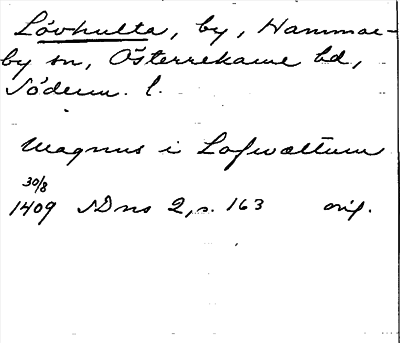 Lövhulta, by, Hammar-
by sn, Österrekarne hd,
Söderm. l.
Magnus i Lofwættum
30/8
1409 SDns 2, s. 163 orig.